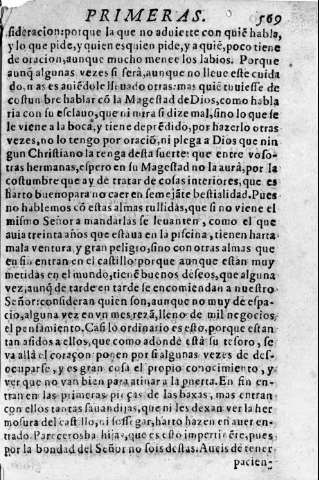 PRIMERAS. 569
sideracion: porque la que no aduierte con quiẽ habla,
y lo que pide, y quien es quien pide, y a quiẽ, poco tiene
de oracion, aunque mucho menee los labios. Porque
aunq̃ algunas vezes si serà, aunque no lleue este cuida
do, mas es auiẽdole lleuado otras: mas quiẽ tuuiesse de
costunbre hablar cõ la Magestad de Dios, como habla
ria con su esclauo, que ni mira si dize mal, sino lo que se
le viene a la boca, y tiene deprẽdido, por hazerlo otras
vezes, no lo tengo por oraciõ, ni plega a Dios que nin
gun Christiano la tenga desta suerte: que entre voso-
tras hermanas, espero en su Magestad no la aurà, por la
costumbre que ay de tratar de cosas interiores, que es
harto bueno para no caer en semejãte bestialidad. Pues
no hablemos cõ estas almas tullidas, que si no viene el
mismo Señor a mandarlas se leuanten, como el que
auia treinta años que estaua en la piscina, tienen harta
mala ventura, y gran peligro, sino con otras almas que
en fin entran en el castillo: porque aunque estan muy
metidas en el mundo, tienẽ buenos deseos, que alguna
vez, aunq̃ de tarde en tarde se encomiendan a nuestro
Señor: consideran quien son, aunque no muy de espa-
cio, alguna vez en vn mes rezã, lleno de mil negocios,
el pensamiento. Casi lo ordinario es esto, porque estan
tan asidos a ellos, que como adonde està su tesoro, se
va allà el coraçon ponen por si algunas vezes de des-
ocuparse, y es gran cosa el propio conocimiento, y
ver que no van bien para atinar a la puerta. En fin en-
tran en las primeras pieças de las baxas, mas entran
con ellos tantas sauandijas, que ni les dexan ver la her
mosura del castillo, ni sossegar, harto hazen en auer en-
trado. Pareceros ha hijas, que es esto impertinẽte, pues
por la bondad del Señor no sois destas. Aueis de tener
pacien-